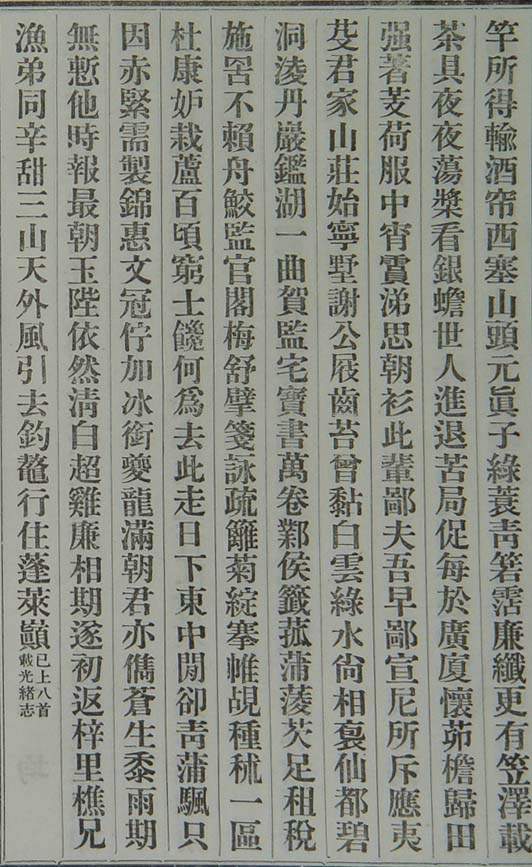 竿所得輸酒帘西塞山頭元眞子綠蓑靑箬霑廉纖更有笠澤載
茶具夜夜蕩槳看銀蟾世人進退苦局促每於廣廈懷茆檐歸田
强著芰荷服中宵霣涕思朝衫此輩鄙夫吾早鄙宣尼所斥應夷
芟君家山莊始寧墅謝公屐齒苔曾黏白雲綠水尙相褱仙都碧
洞淩丹巖鑑湖一曲賀監宅寶書萬卷鄴侯籤菰蒲蓤芡足租稅
施罟不賴舟鮫監官閣梅舒擘箋詠疏籬菊綻搴帷覘種秫一區
杜康妒栽蘆百頃窮士饞何爲去此走日下東中閒卻靑蒲颿只
因赤緊需製錦惠文冠佇加冰銜夔龍滿朝君亦儁蒼生黍雨期
無慙他時報最朝玉陛依然淸白超雞廉相期遂初返梓里樵兄
漁弟同辛甜三山天外風引去釣鼇行住蓬萊巓已上八首載光緒志